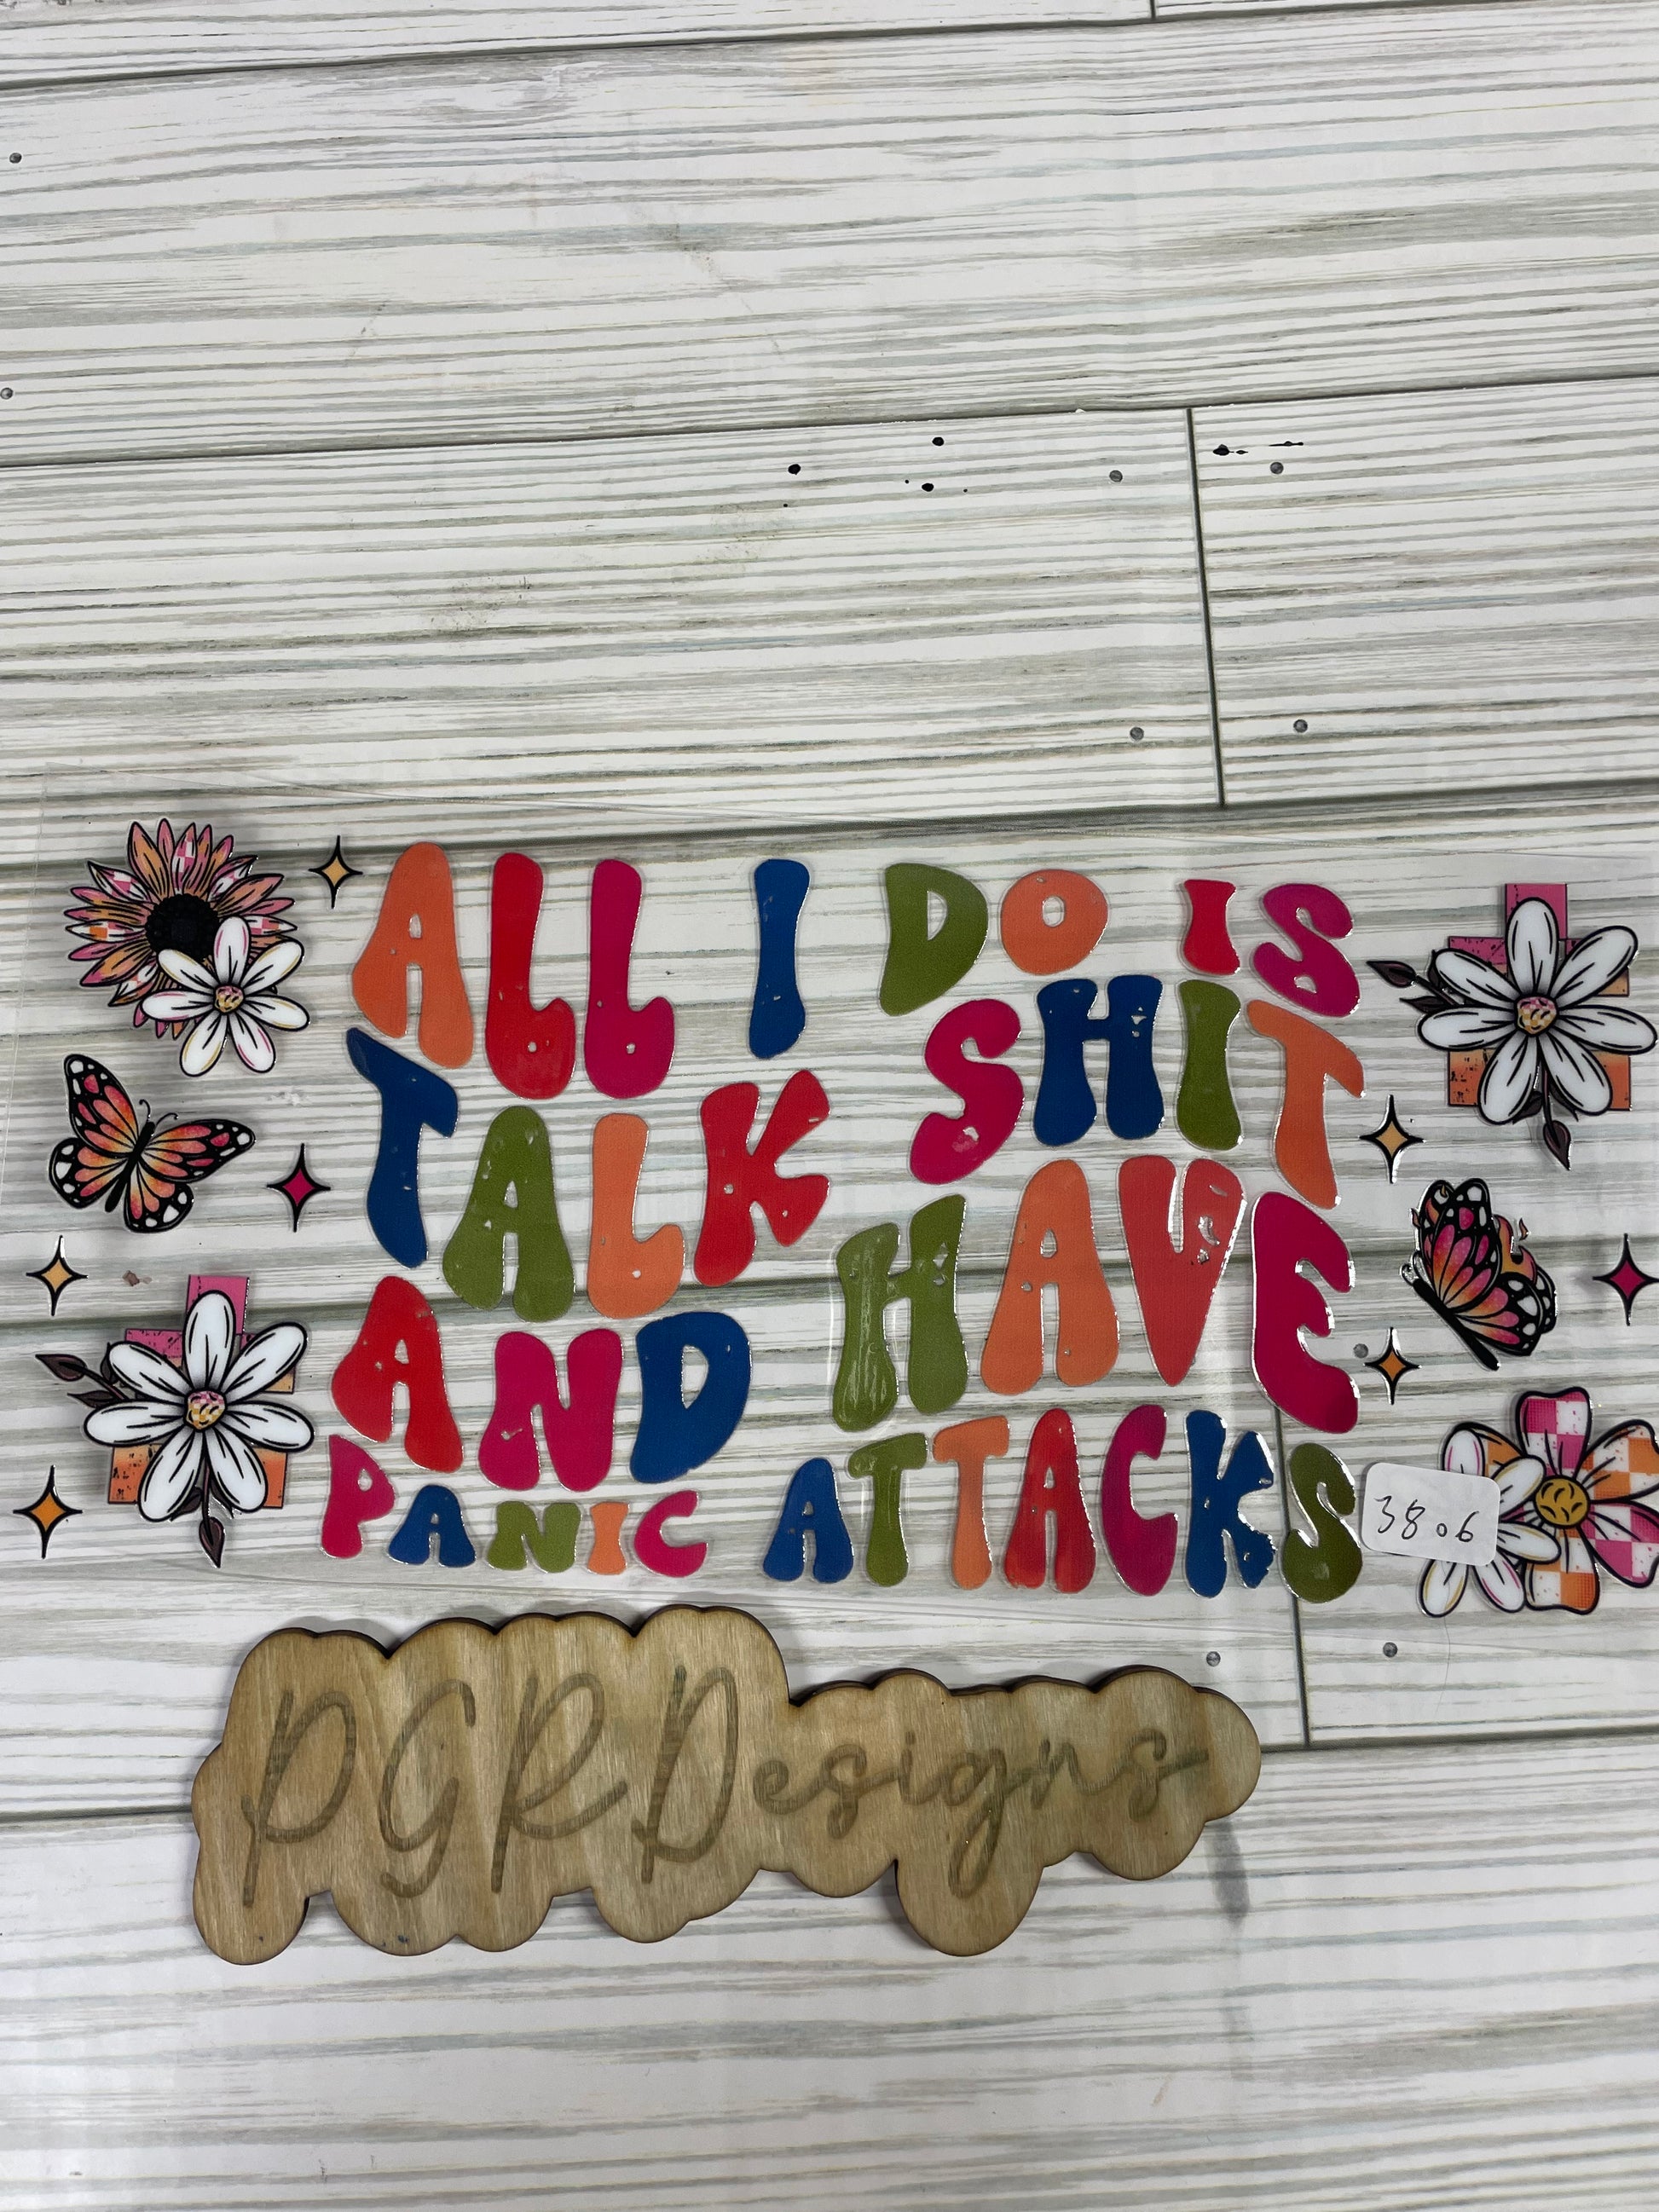 ALL I DO IS
TALK SHIT
AND HAVE
PANIC ATTACKS
38.6
PGRDesigns